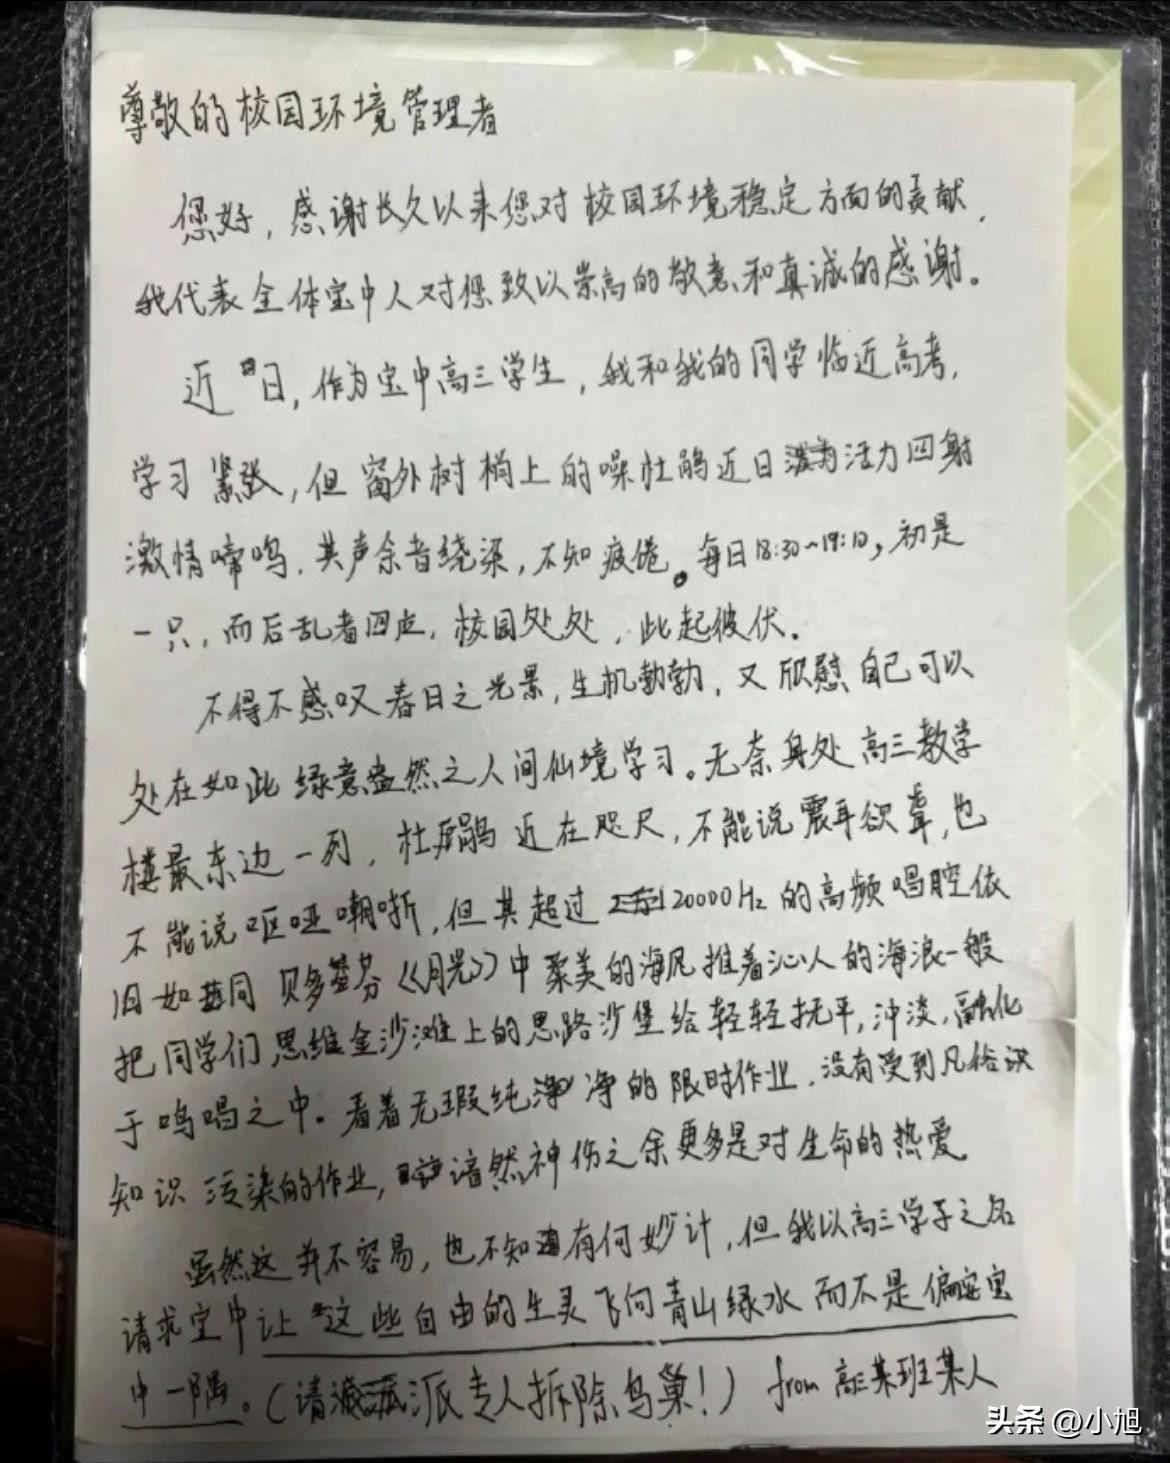 尊敬的校园环境管理者
您好，感谢长久以来您对校园环境稳定方面的贡献，
我代表全体宝中人对您致以崇高的敬意和真诚的感谢。
近日，作为宝中高三学生，我和我的同学临近高考，
学习紧张，但窗外树梢上的噪杜鹃近日活力四射
激情啼鸣，其声余音绕梁，不知疲倦。每日18:30~19:10，初是
一只，而后乱者四应，校园处处，此起彼伏。
不得不感叹春日之光景，生机勃勃，又欣慰自己可以
处在如此绿意盎然之人间仙境学习。无奈身处高三教学
楼最东边一列，杜鹃近在咫尺，不能说震耳欲聋，也
不能说呕哑嘲哳，但其超过20000Hz的高频唱腔依
旧如同贝多芬《月光》中柔美的海风推着沁人的海浪一般
把同学们思维金沙滩上的思路沙堡给轻轻抚平，冲淡，融化
于鸣唱之中。看着无瑕纯净的限时作业，没有受到凡俗识
知识污染的作业，谙然神伤之余更多是对生命的热爱
虽然这并不容易，也不知有何妙计，但我以高三学子之名
请求宝中让这些自由的生灵飞向青山绿水而不是偏安宝
中一隅。（请派专人拆除鸟巢！） from 高三某班某人
头条 @小旭